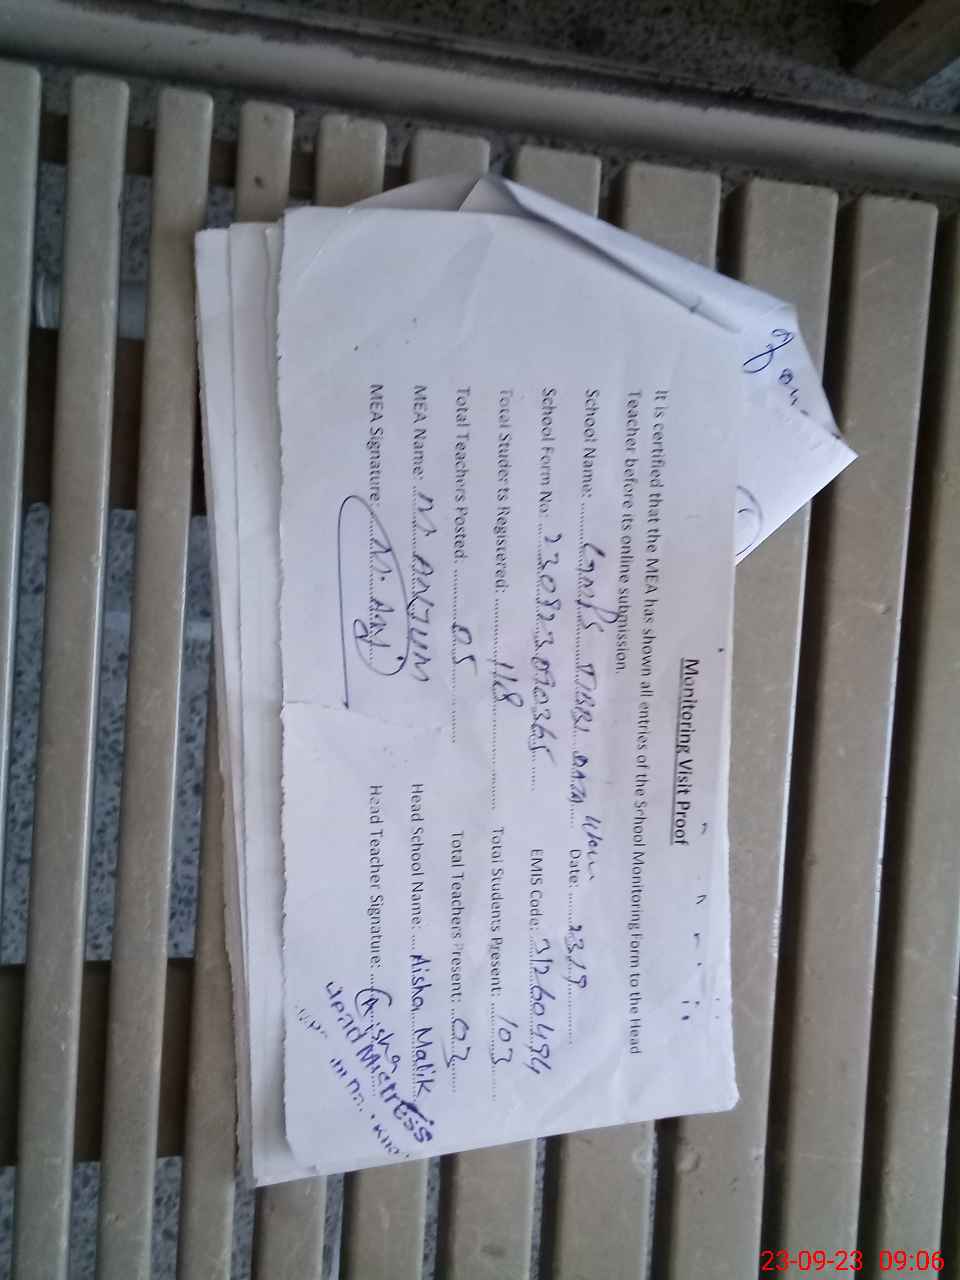 Monitoring Visit Proof
It is certified that the MEA has shown all entries of the School Monitoring Form to the Head
Teacher before its online submission.
School Name: GGMPS TIBBI Date: 23/9
School Form No: 230923090365 EMIS Code: 31260494
Total Students Registered: 118 Total Students Present: 103
Total Teachers Posted: 05 Total Teachers Present: 02
MEA Name: M. ANJUM Head School Name: Aisha Malik
MEA Signature: M. Anj Head Teacher Signature: Aisha
Head Mistress
23-09-23 09:06